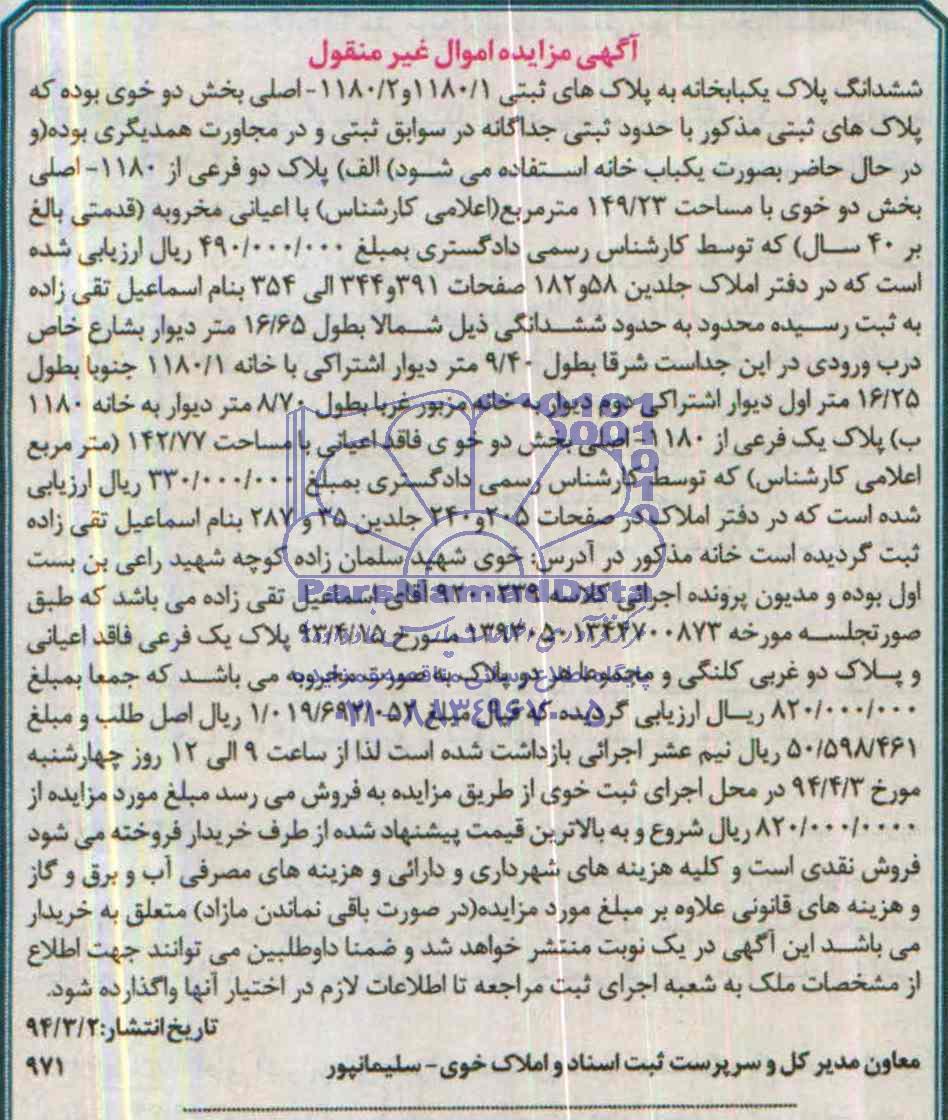 آگهی مزایده اموال غیر منقول
ششدانگ پلاک یکبابخانه به پلاک های ثبتی ۱۱۸۰/۱و۱۱۸۰/۲- اصلی بخش دو خوی بوده که
پلاک های ثبتی مذکور با حدود ثبتی جداگانه در سوابق ثبتی و در مجاورت همدیگری بوده(و
در حال حاضر بصورت یکباب خانه استفاده می شود) الف) پلاک دو فرعی از ۱۱۸۰- اصلی
بخش دو خوی با مساحت ۱۴۹/۲۳ مترمربع(اعلامی کارشناس) با اعیانی مخروبه (قدمتی بالغ
بر ۴۰ سال) که توسط کارشناس رسمی دادگستری بمبلغ ۴۹۰/۰۰۰/۰۰۰ ریال ارزیابی شده
است که در دفتر املاک جلدین ۵۸و۱۸۲ صفحات ۳۹۱و۳۴۴ الی ۳۵۴ بنام اسماعیل تقی زاده
به ثبت رسیده محدود به حدود ششدانگی ذیل شمالا بطول ۱۶/۶۵ متر دیوار بشارع خاص
درب ورودی در این جداست شرقا بطول ۹/۴۰ متر دیوار اشتراکی با خانه ۱۱۸۰/۱ جنوبا بطول
۱۶/۲۵ متر اول دیوار اشتراکی دوم دیوار به خانه مزبور غربا بطول ۸/۷۰ متر دیوار به خانه ۱۱۸۰
ب) پلاک یک فرعی از ۱۱۸۰- اصلی بخش دو خو ی فاقد اعیانی با مساحت ۱۴۲/۷۷ (متر مربع
اعلامی کارشناس) که توسط کارشناس رسمی دادگستری بمبلغ ۳۳۰/۰۰۰/۰۰۰ ریال ارزیابی
شده است که در دفتر املاک در صفحات ۲۰۵و۲۴۰ جلدین ۳۵ و ۲۸۷ بنام اسماعیل تقی زاده
ثبت گردیده است خانه مذکور در آدرس: خوی شهید سلمان زاده کوچه شهید راعی بن بست
اول بوده و مدیون پرونده اجرائی کلاسه ۹۲۰۰۳۳۹ آقای اسماعیل تقی زاده می باشد که طبق
صورتجلسه مورخه ۱۳۹۳۰۵۰۱۳۴۴۷۰۰۸۷۳ مورخ ۹۳/۴/۱۵ پلاک یک فرعی فاقد اعیانی
و پلاک دو غربی کلنگی و مجموعا هر دو پلاک به صورت مخروبه می باشد که جمعا بمبلغ
۸۲۰/۰۰۰/۰۰۰ ریال ارزیابی گردیده که قبال مبلغ ۱/۰۱۹/۶۹۲/۰۵۲ ریال اصل طلب و مبلغ
۵۰/۵۹۸/۴۶۱ ریال نیم عشر اجرائی بازداشت شده است لذا از ساعت ۹ الی ۱۲ روز چهارشنبه
مورخ ۹۴/۴/۳ در محل اجرای ثبت خوی از طریق مزایده به فروش می رسد مبلغ مورد مزایده از
۸۲۰/۰۰۰/۰۰۰۰ ریال شروع و به بالاترین قیمت پیشنهاد شده از طرف خریدار فروخته می شود
فروش نقدی است و کلیه هزینه های شهرداری و دارائی و هزینه های مصرفی آب و برق و گاز
و هزینه های قانونی علاوه بر مبلغ مورد مزایده(در صورت باقی نماندن مازاد) متعلق به خریدار
می باشد این آگهی در یک نوبت منتشر خواهد شد و ضمنا داوطلبین می توانند جهت اطلاع
از مشخصات ملک به شعبه اجرای ثبت مراجعه تا اطلاعات لازم در اختیار آنها واگذارده شود.
تاریخ انتشار: ۹۴/۳/۲
معاون مدیر کل و سرپرست ثبت اسناد و املاک خوی- سلیمانپور
۹۷۱
ParsNamadData
۰۲۱-۸۸۳۴۹۶۷۰-۵